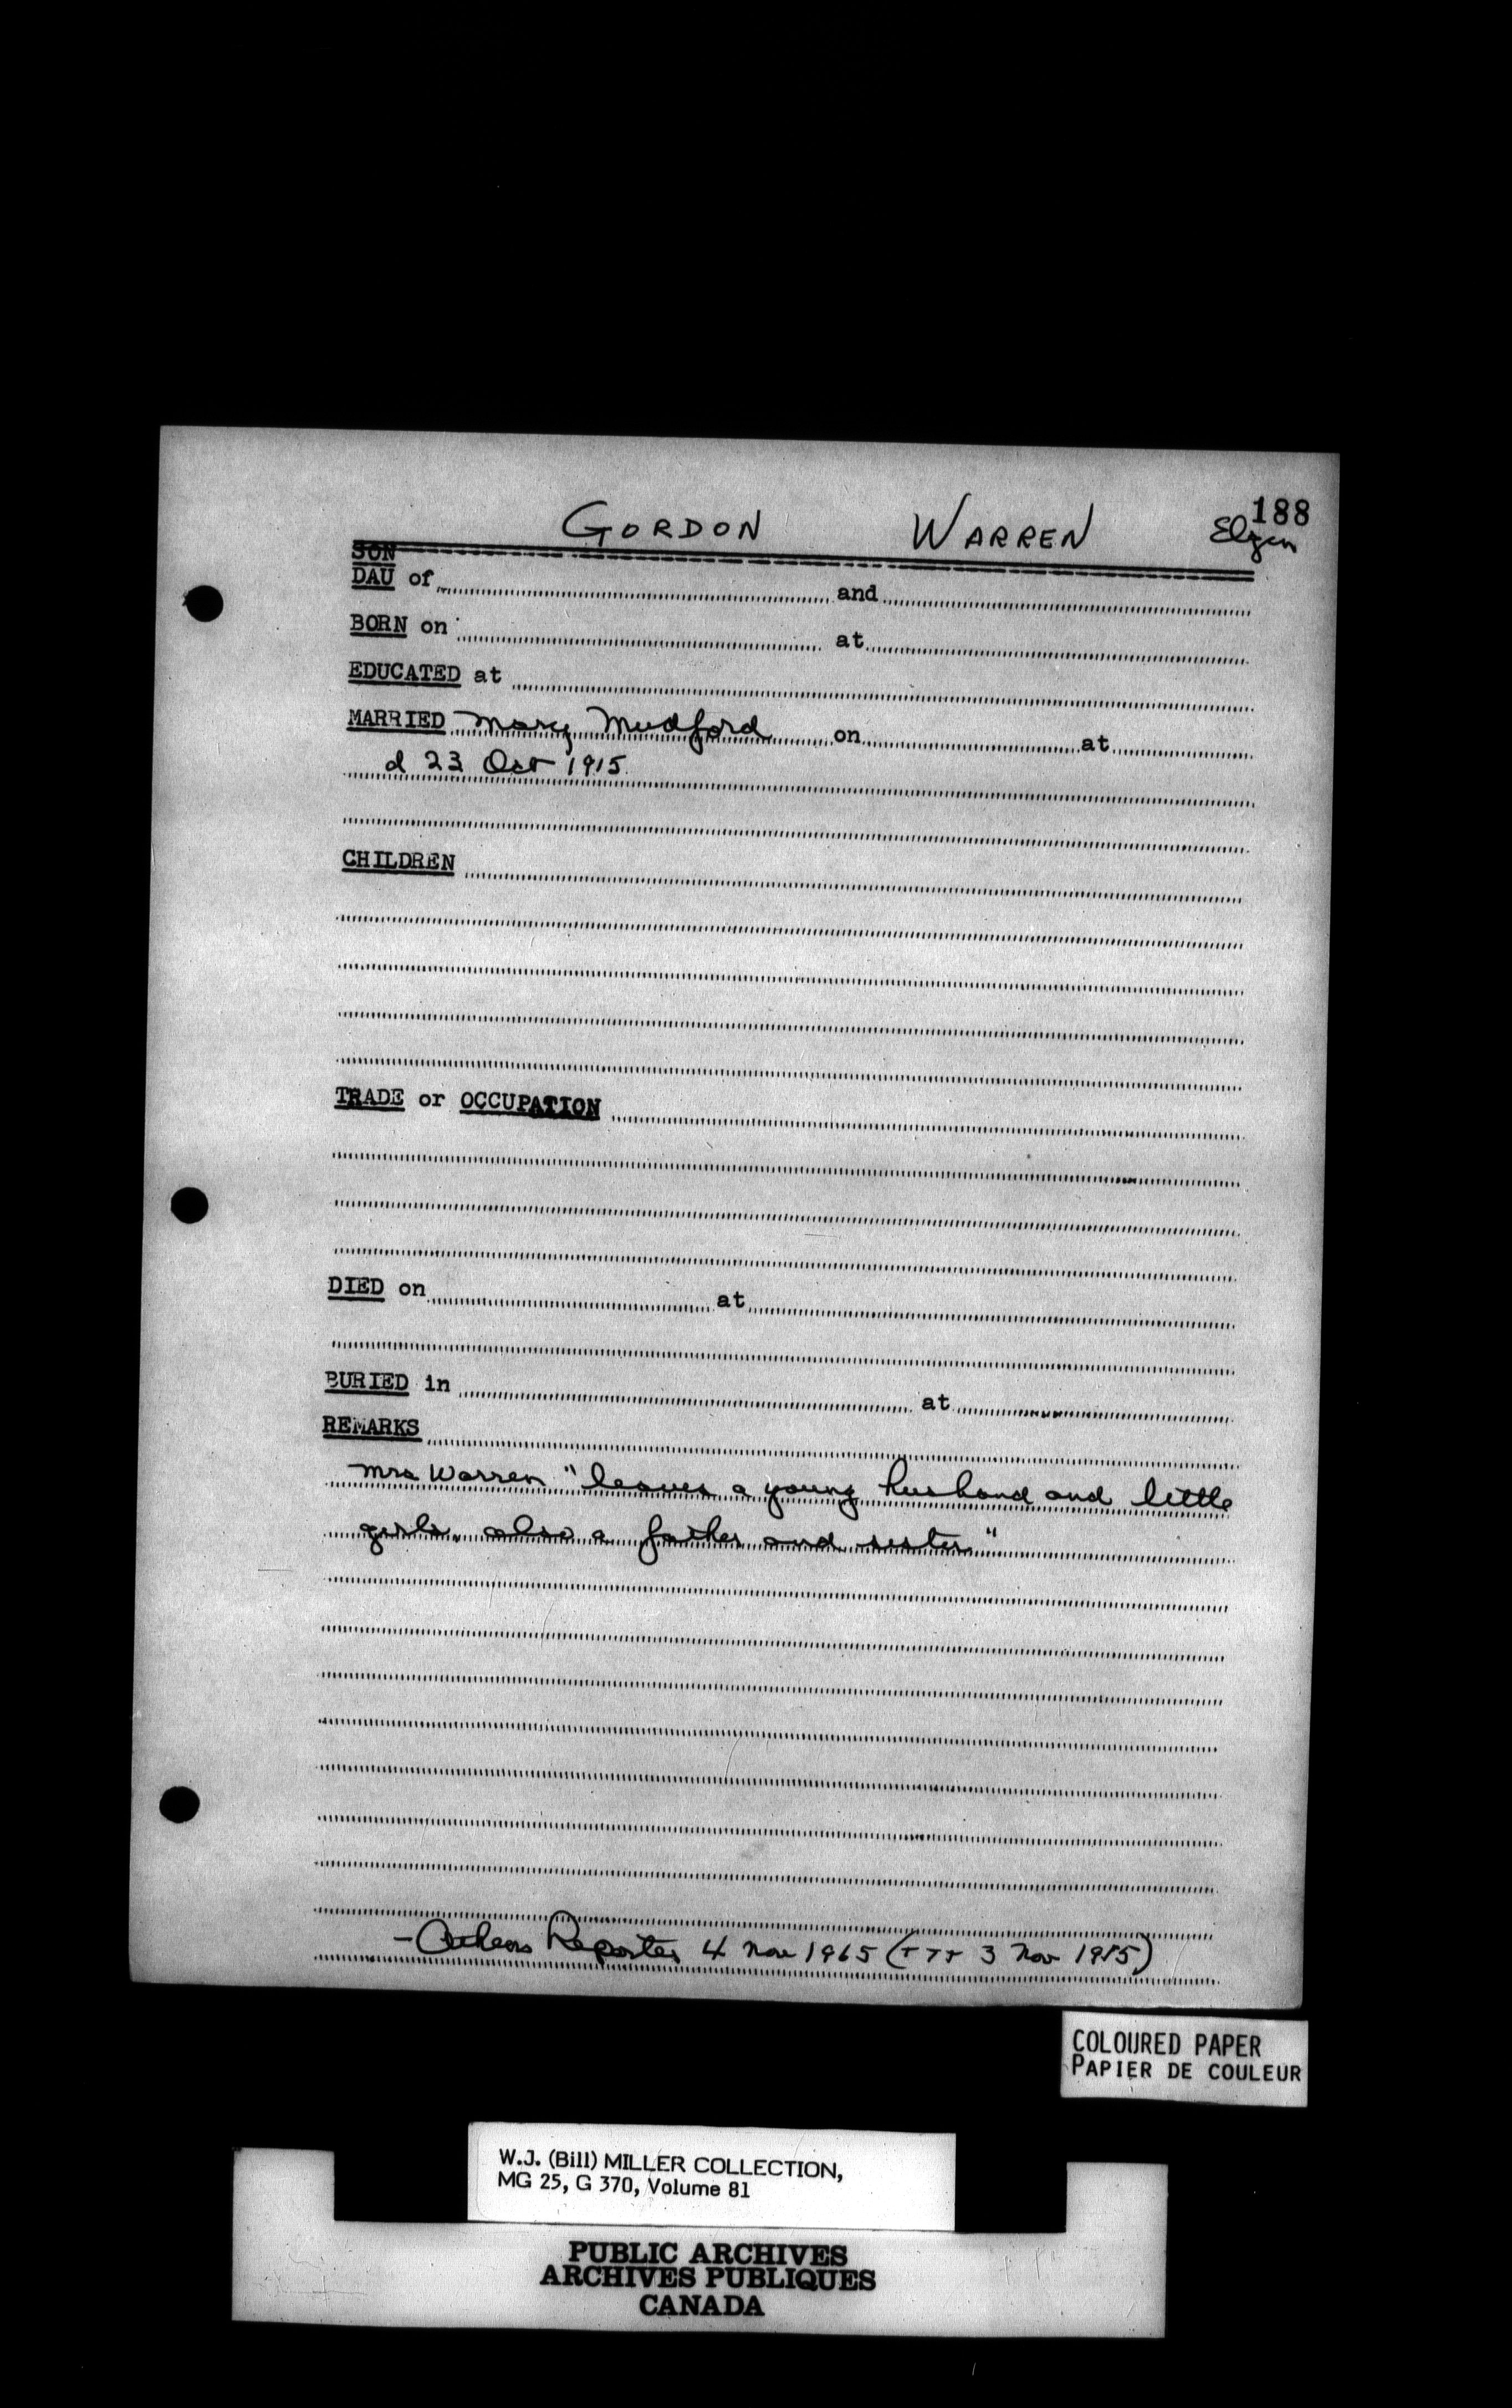 188
GORDON WARREN Elgin
SON
DAU of and
BORN on at
EDUCATED at
MARRIED Mary Mudford on at
d 23 Oct 1915
CHILDREN
TRADE or OCCUPATION
DIED on at
BURIED in at
REMARKS
Mrs Warren "leaves a young husband and little
girls, also a father and sister"
- Athens Reporter 4 Nov 1965 ( 3 Nov 1915)
COLOURED PAPER
PAPIER DE COULEUR
W.J. (Bill) MILLER COLLECTION,
MG 25, G 370, Volume 81
PUBLIC ARCHIVES
ARCHIVES PUBLIQUES
CANADA